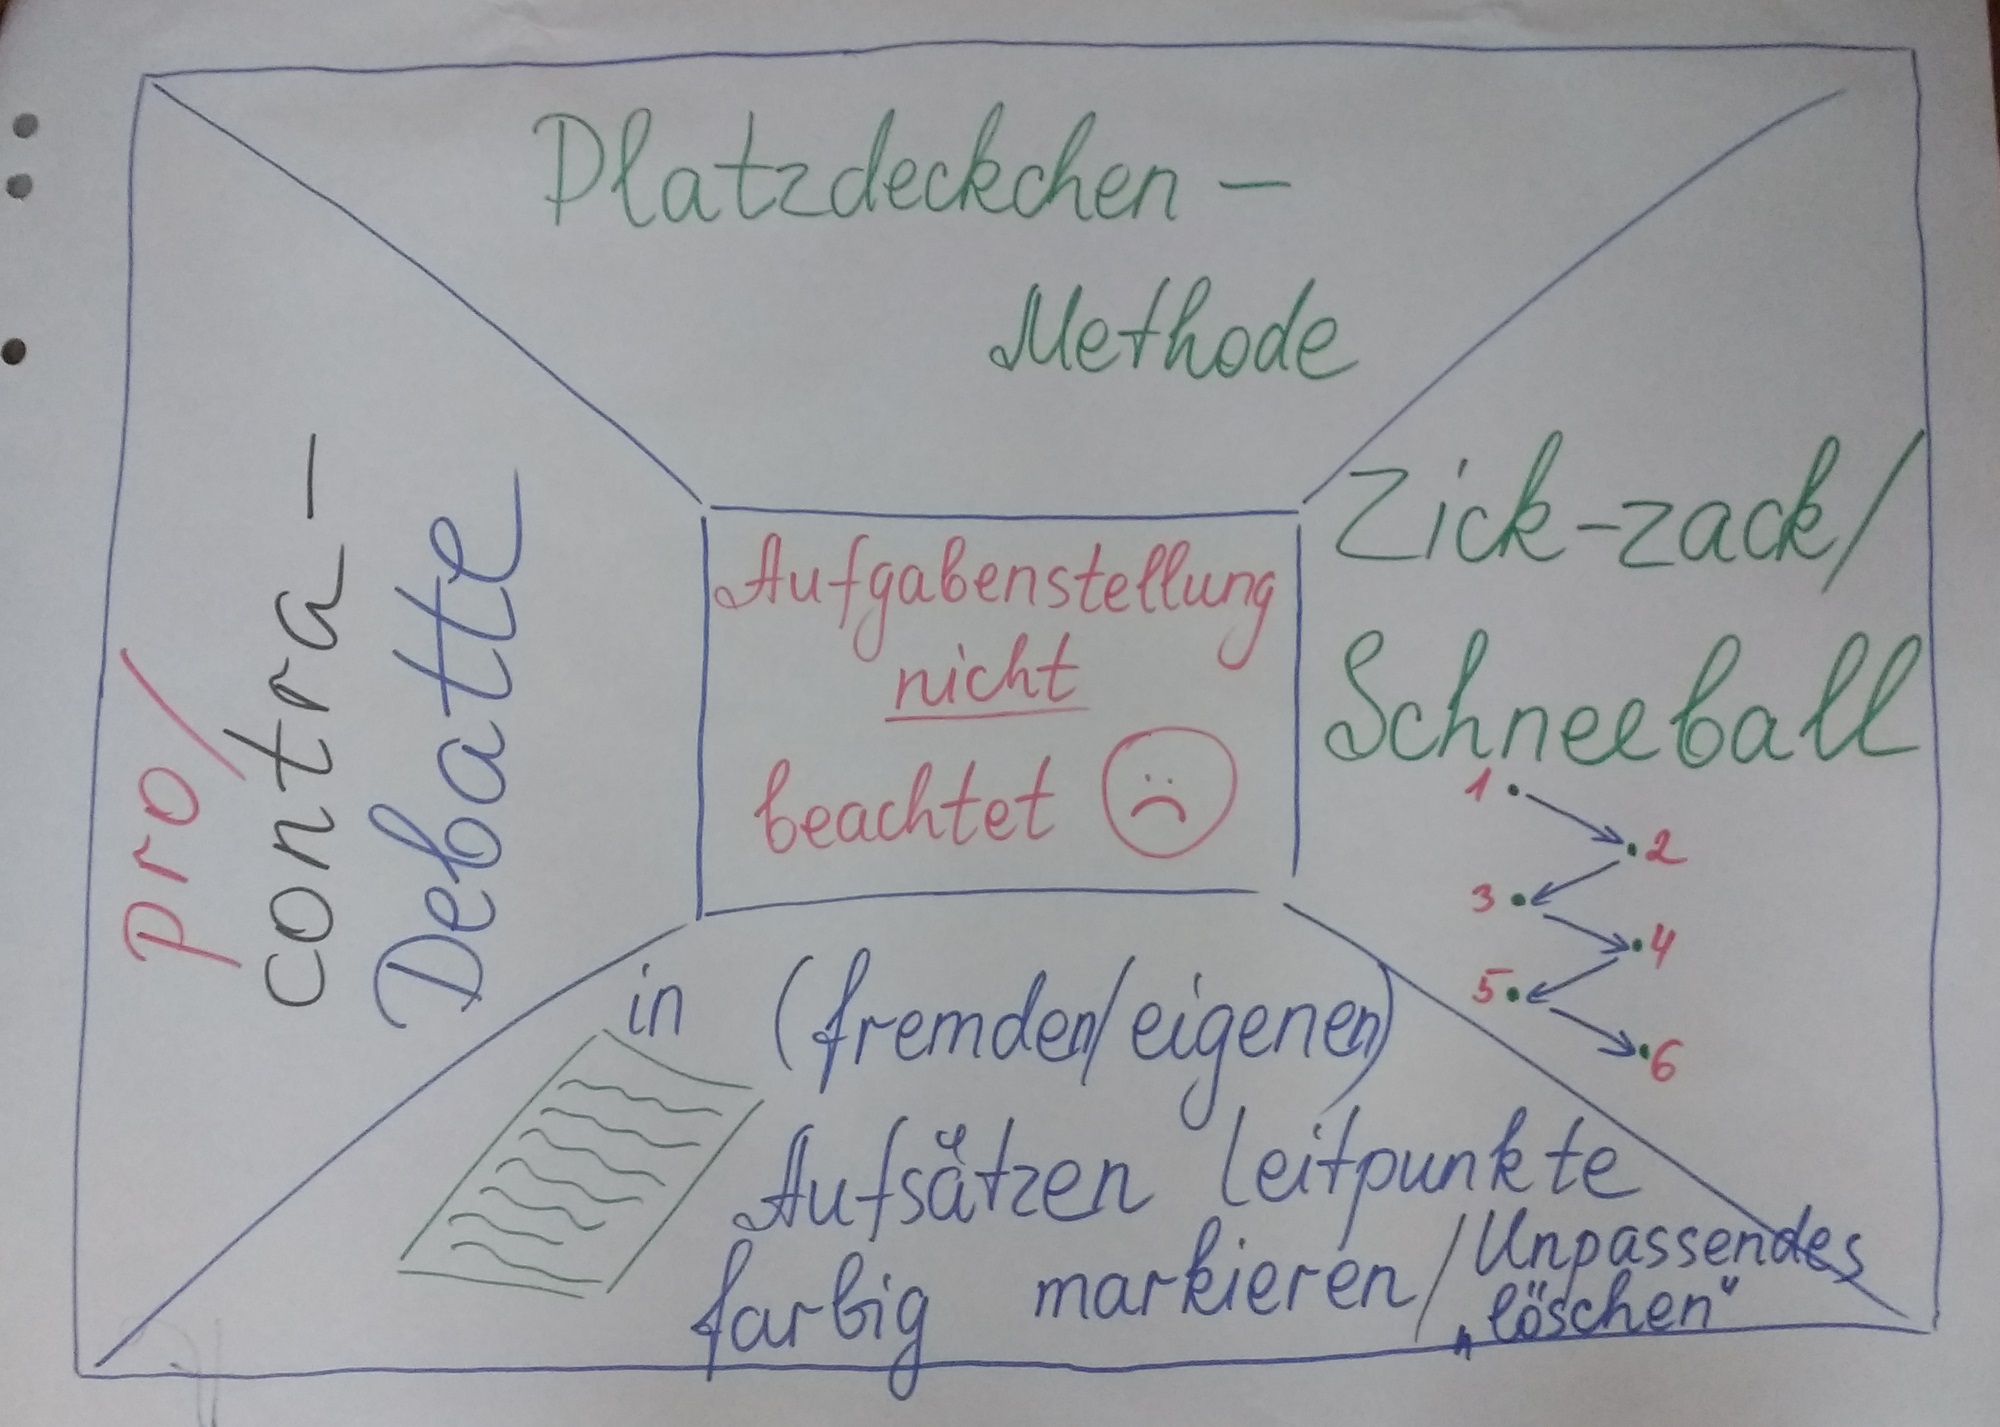 Platzdeckchen –
Methode
pro/
contra –
Debatte
Aufgabenstellung
nicht
beachtet
Zick-zack/
Schneeball
1
2
3
4
5
6
in (fremden/eigenen)
Aufsätzen Leitpunkte
farbig markieren/Unpassendes
„löschen"